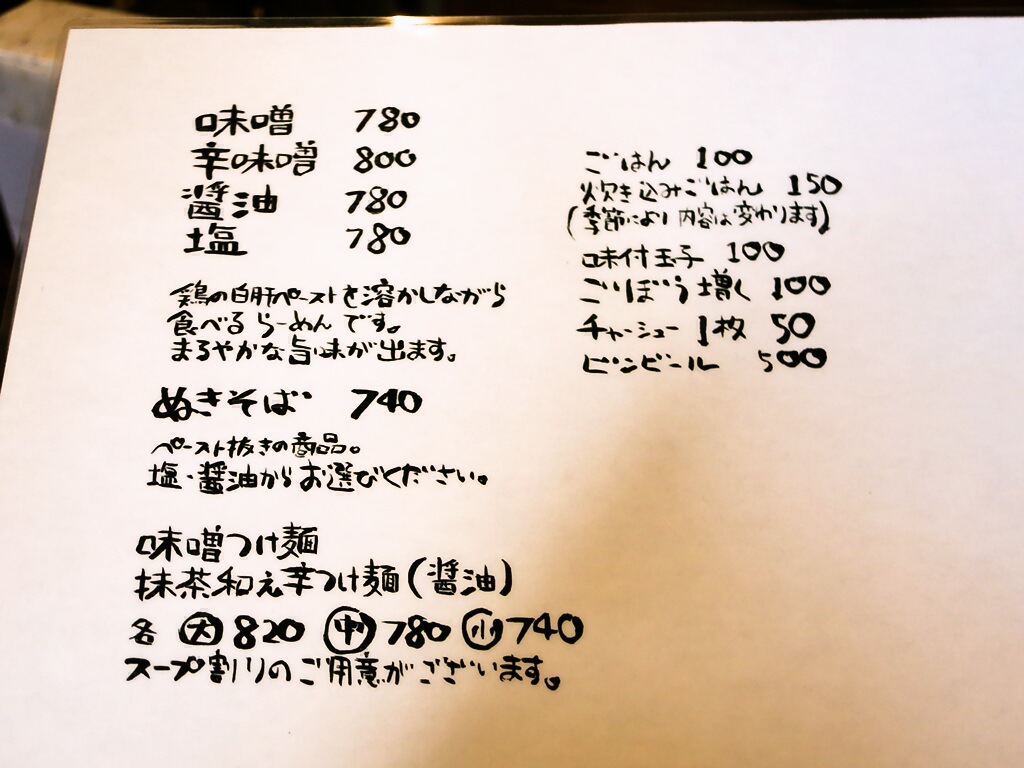 味噌 780
辛味噌 800
醤油 780
塩 780
鶏の白肝ペーストを溶かしながら
食べるらーめんです。
まろやかな旨味が出ます。
ぬきそば 740
ペースト抜きの商品。
塩・醤油からお選びください。
味噌つけ麺
抹茶和え辛つけ麺(醤油)
各 大820 中780 小740
スープ割りのご用意がございます。
ごはん 100
炊き込みごはん 150
(季節により内容は変わります)
味付玉子 100
ごぼう増し 100
チャーシュー1枚 50
ビンビール 500